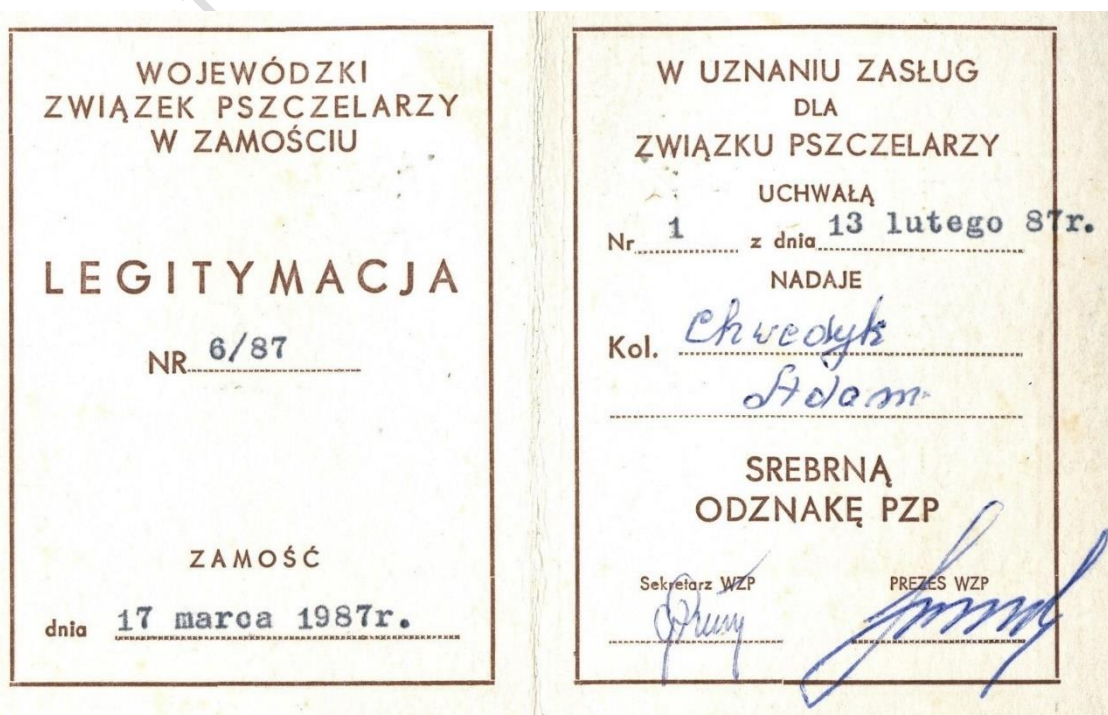 WOJEWÓDZKI
ZWIĄZEK PSZCZELARZY
W ZAMOŚCIU
LEGITYMACJA
NR 6/87
ZAMOŚĆ
dnia 17 marca 1987r.
W UZNANIU ZASŁUG
DLA
ZWIĄZKU PSZCZELARZY
UCHWAŁĄ
Nr 1 z dnia 13 lutego 87r.
NADAJE
Kol. Chwedyk
Adam
SREBRNĄ
ODZNAKĘ PZP
Sekretarz WZP PREZES WZP